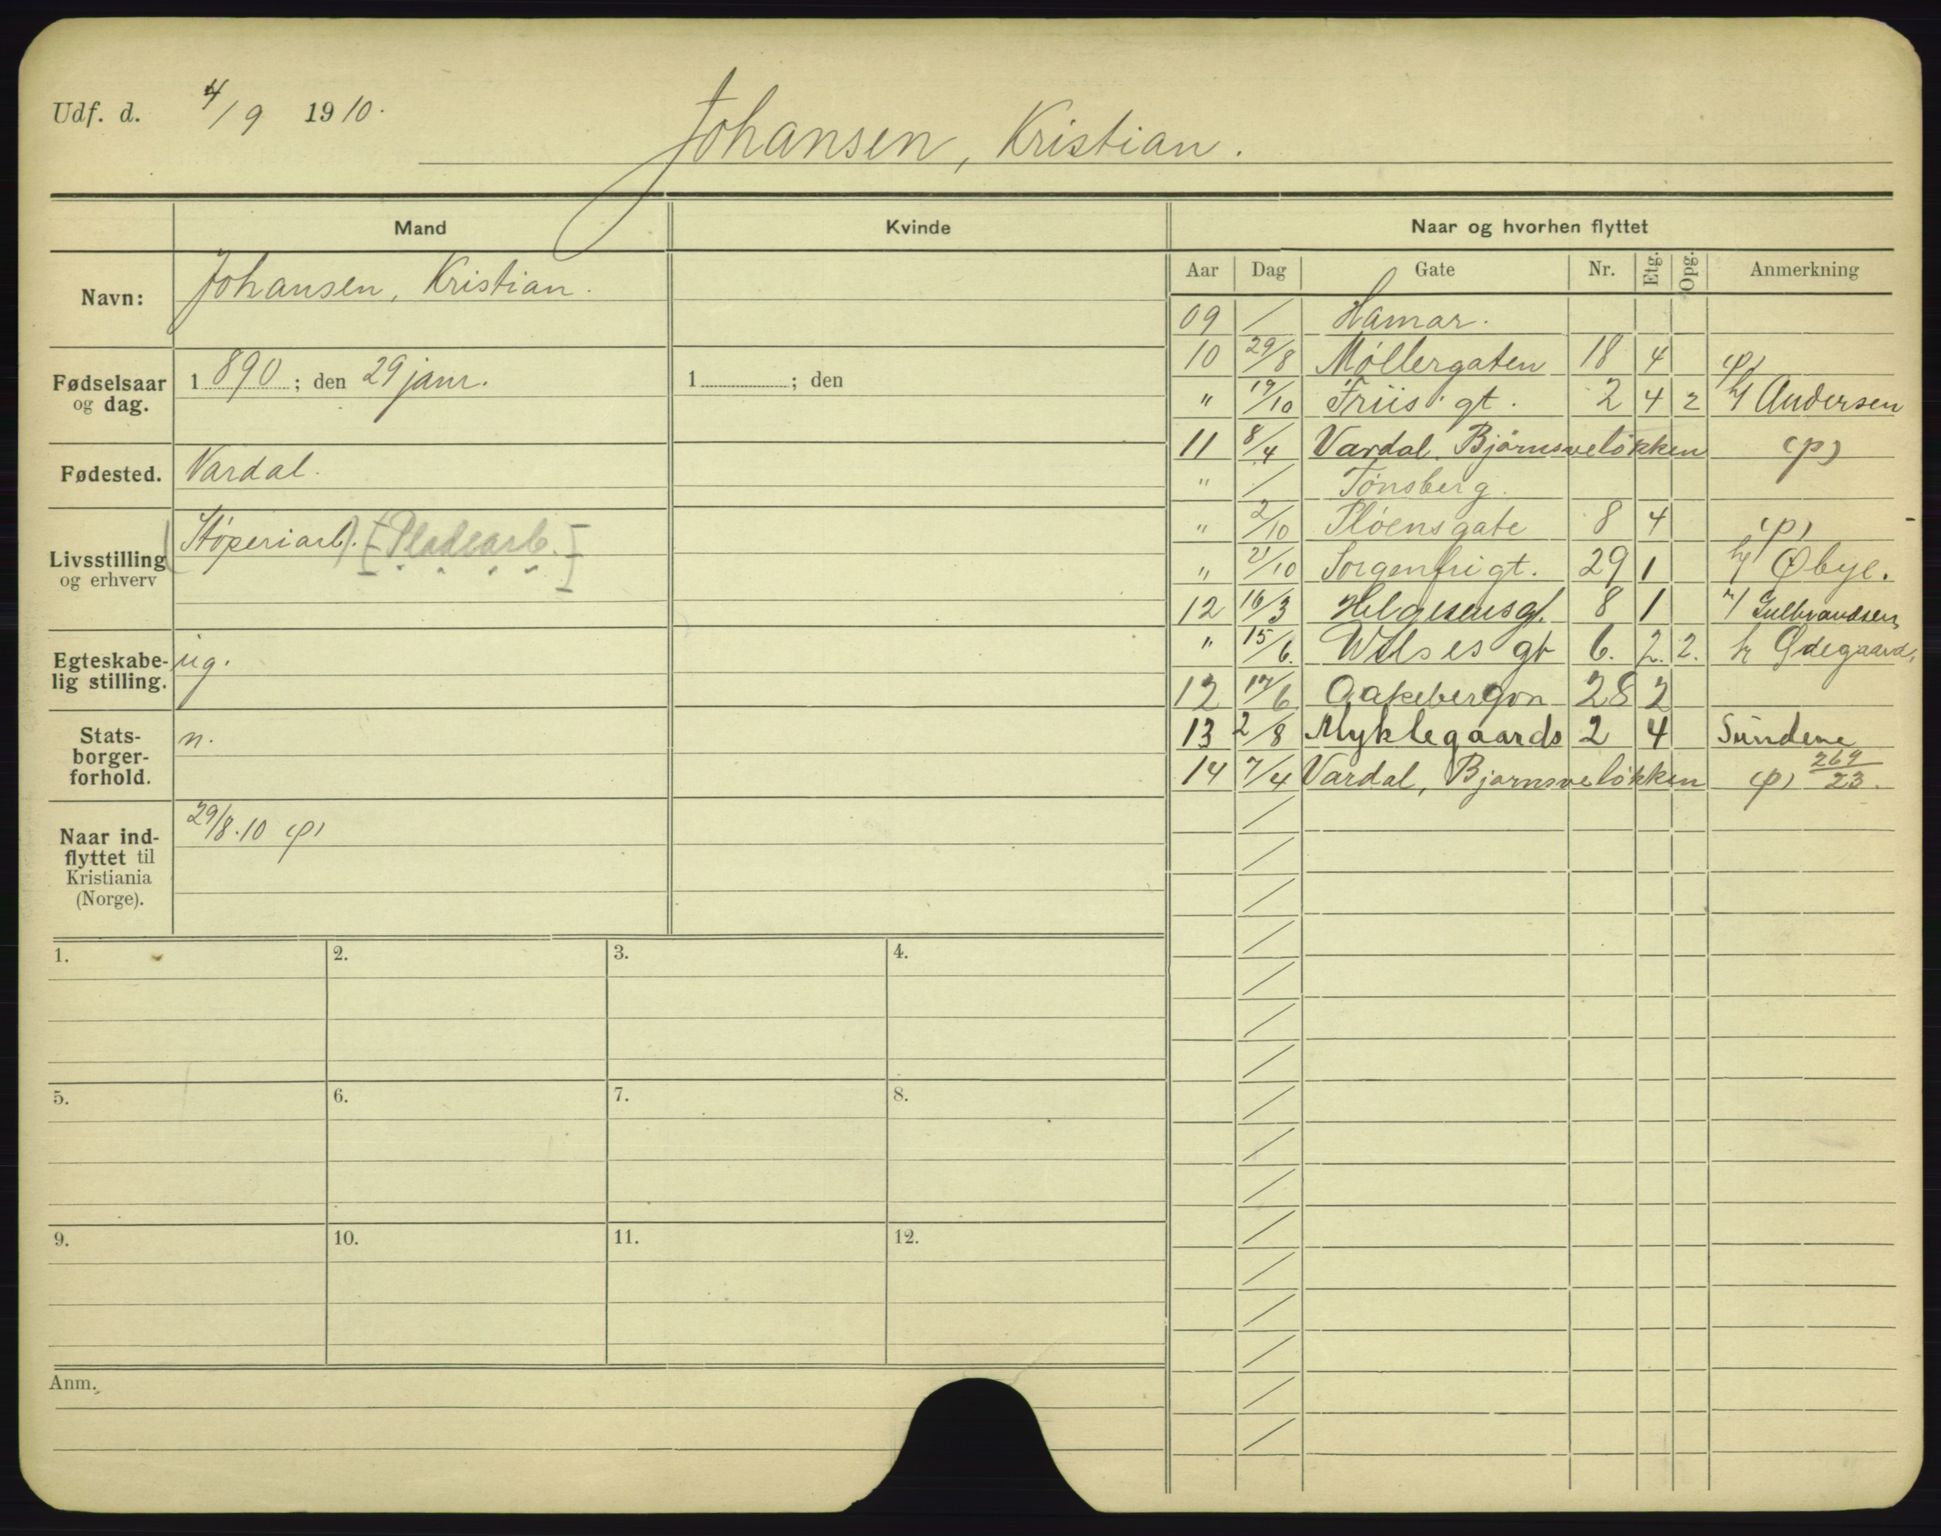 Udf. d. 4/9 1910.
Johansen, Kristian.
Mand
Kvinde
Naar og hvorhen flyttet
Navn: Johansen, Kristian.
Fødselsaar og dag. 1890; den 29 janr.
1 ; den
Fødested. Vardal.
Livsstilling og erhverv (Støperiarb.) [Pladearb.]
Egteskabe-
lig stilling. ug.
Stats-
borger-
forhold. n.
Naar ind-
flyttet til
Kristiania
(Norge). 29/8.10 (p)
Aar Dag Gate Nr. Etg. Opg. Anmerkning
09 / Hamar.
10 29/8 Møllergaten 18 4 (p)
" 19/10 Friis' gt. 2 4 2 h/ Andersen
11 8/4 Vardal. Bjørnsveløkken (p)
" / Tønsberg.
" 2/10 Pløensgate 8 4 (p)
" 21/10 Sorgenfrigt. 29 1 h/ Øbye.
12 16/3 Helgesensgt. 8 1 h/ Gulbrandsen
" 15/6. Wilses gt 6. 2. 2. h Ødegaard.
12 17/6 Aakebergvn 28 2
13 2/8 Myklegaards 2 4 Sundene
14 7/4 Vardal, Bjørnsveløkken (p) 269/23.
1. 2. 3. 4.
5. 6. 7. 8.
9. 10. 11. 12.
Anm.